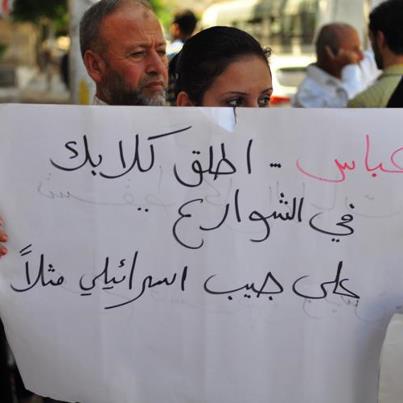 عباس .. اطلق كلابك
في الشوارع
على جيب اسرائيلي مثلاً